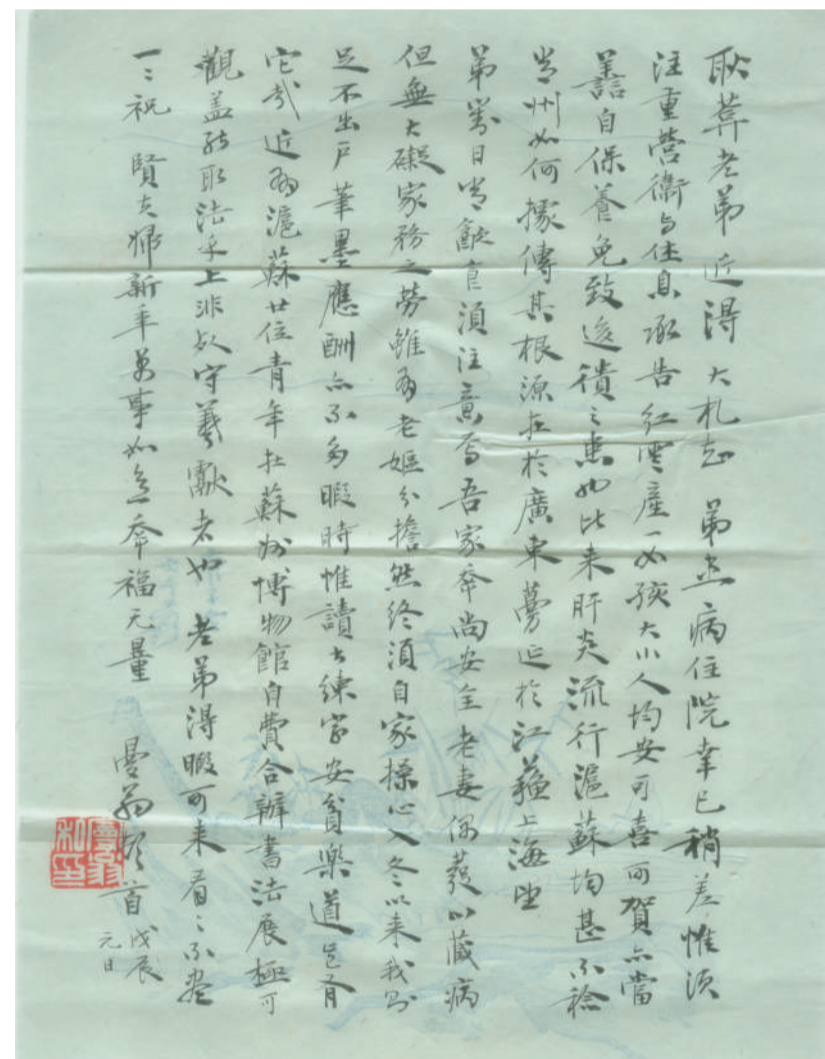 耿葊老弟近得 大札知 弟患病住院幸已稍差惟須
注重營衛与休息承告紅霙產一女孩大小人均安可喜可賀亦當
善自保養免致後之患也比来肝炎流行滬蘇均甚不稔
常州如何據傳其根源在於廣東蔓延於江蘇上海里
弟對日常飲食須注意焉吾家夲尚安全老妻偶發心臓病
但無大礙家務之劳雖為老嫗分擔然終須自家操心入冬以来我則
足不出戶筆墨應酬亦不多暇時惟讀書練字安貧樂道豈有
它哉近為滬蘇廿位青年在蘇州博物館自費合辦書法展極可
觀盖能取法乎上非如守羲獻者也 老弟得暇可来看看不盡
一一祝 賢夫婦新年萬事如意夲福无量
憂翁頓首 戊辰
元日